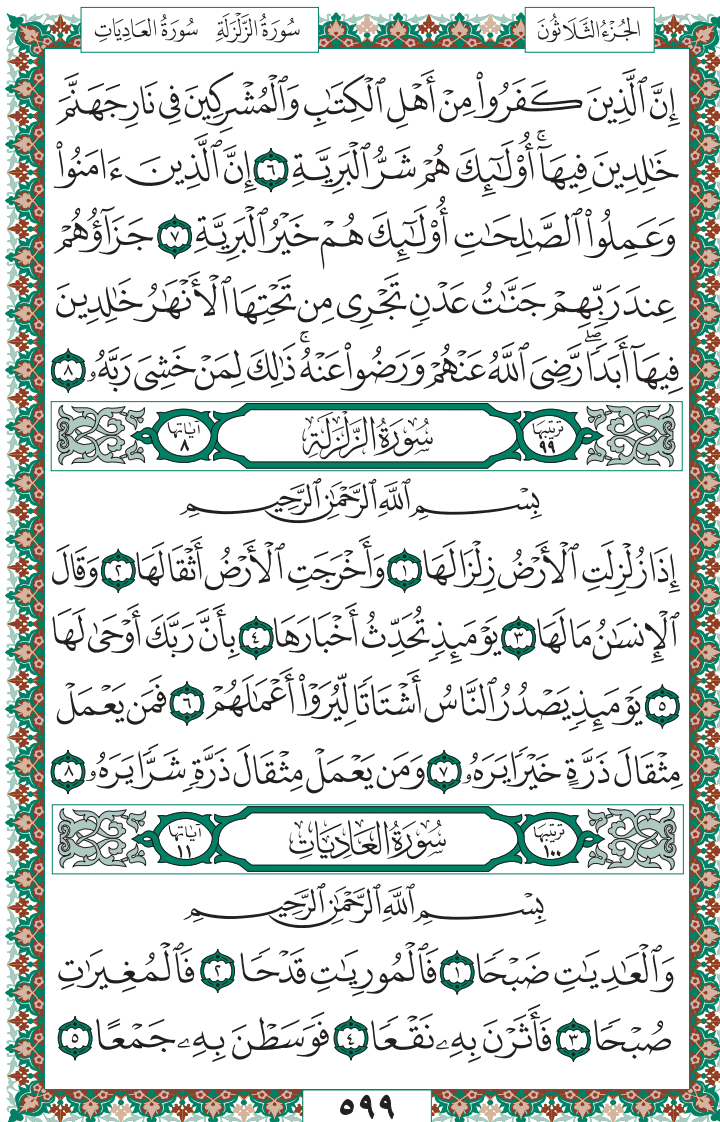 الجُزْءُ الثَّلَاثُونَ سُورَةُ الزَّلْزَلَةِ سُورَةُ العَادِيَاتِ
إِنَّ ٱلَّذِينَ كَفَرُواْ مِنْ أَهْلِ ٱلْكِتَٰبِ وَٱلْمُشْرِكِينَ فِى نَارِ جَهَنَّمَ
خَٰلِدِينَ فِيهَآ ۚ أُوْلَٰٓئِكَ هُمْ شَرُّ ٱلْبَرِيَّةِ ٦ إِنَّ ٱلَّذِينَ ءَامَنُواْ
وَعَمِلُواْ ٱلصَّٰلِحَٰتِ أُوْلَٰٓئِكَ هُمْ خَيْرُ ٱلْبَرِيَّةِ ٧ جَزَآؤُهُمْ
عِندَ رَبِّهِمْ جَنَّٰتُ عَدْنٍ تَجْرِى مِن تَحْتِهَا ٱلْأَنْهَٰرُ خَٰلِدِينَ
فِيهَآ أَبَدًا ۖ رَّضِىَ ٱللَّهُ عَنْهُمْ وَرَضُواْ عَنْهُ ۚ ذَٰلِكَ لِمَنْ خَشِىَ رَبَّهُۥ ٨
ترتيبها ٩٩ سُورَةُ الزَّلْزَلَةِ آياتها ٨
بِسْمِ ٱللَّهِ ٱلرَّحْمَٰنِ ٱلرَّحِيمِ
إِذَا زُلْزِلَتِ ٱلْأَرْضُ زِلْزَالَهَا ١ وَأَخْرَجَتِ ٱلْأَرْضُ أَثْقَالَهَا ٢ وَقَالَ
ٱلْإِنسَٰنُ مَا لَهَا ٣ يَوْمَئِذٍ تُحَدِّثُ أَخْبَارَهَا ٤ بِأَنَّ رَبَّكَ أَوْحَىٰ لَهَا
٥ يَوْمَئِذٍ يَصْدُرُ ٱلنَّاسُ أَشْتَاتًا لِّيُرَوْاْ أَعْمَٰلَهُمْ ٦ فَمَن يَعْمَلْ
مِثْقَالَ ذَرَّةٍ خَيْرًا يَرَهُۥ ٧ وَمَن يَعْمَلْ مِثْقَالَ ذَرَّةٍ شَرًّا يَرَهُۥ ٨
ترتيبها ١٠٠ سُورَةُ العَادِيَاتِ آياتها ١١
بِسْمِ ٱللَّهِ ٱلرَّحْمَٰنِ ٱلرَّحِيمِ
وَٱلْعَٰدِيَٰتِ ضَبْحًا ١ فَٱلْمُورِيَٰتِ قَدْحًا ٢ فَٱلْمُغِيرَٰتِ
صُبْحًا ٣ فَأَثَرْنَ بِهِۦ نَقْعًا ٤ فَوَسَطْنَ بِهِۦ جَمْعًا ٥
٥٩٩